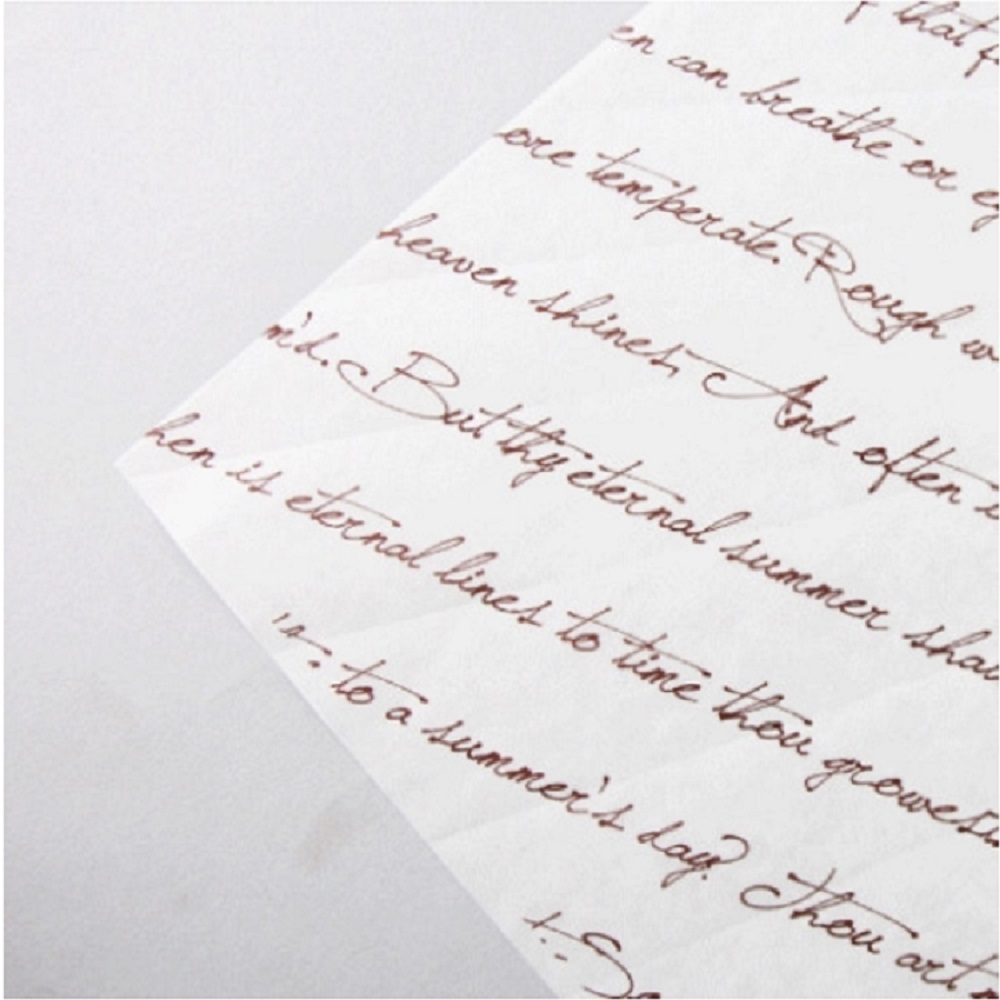 that f
en can breathe or ey
ore temperate. Rough w
heaven shines, And often i
m'd. But thy eternal summer shal
hen is eternal lines to time thou growest
to a summer's day? Thou art